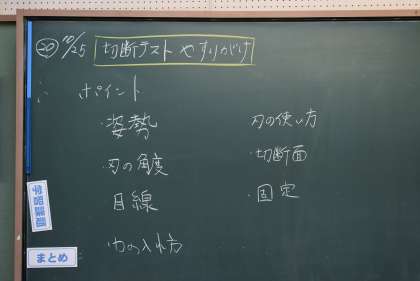 ⑳ 10/25 切断テスト やすりがけ
ポイント
・姿勢
・刃の角度
・目線
・力の入れ方
刃の使い方
・切断面
・固定
学習課題
まとめ